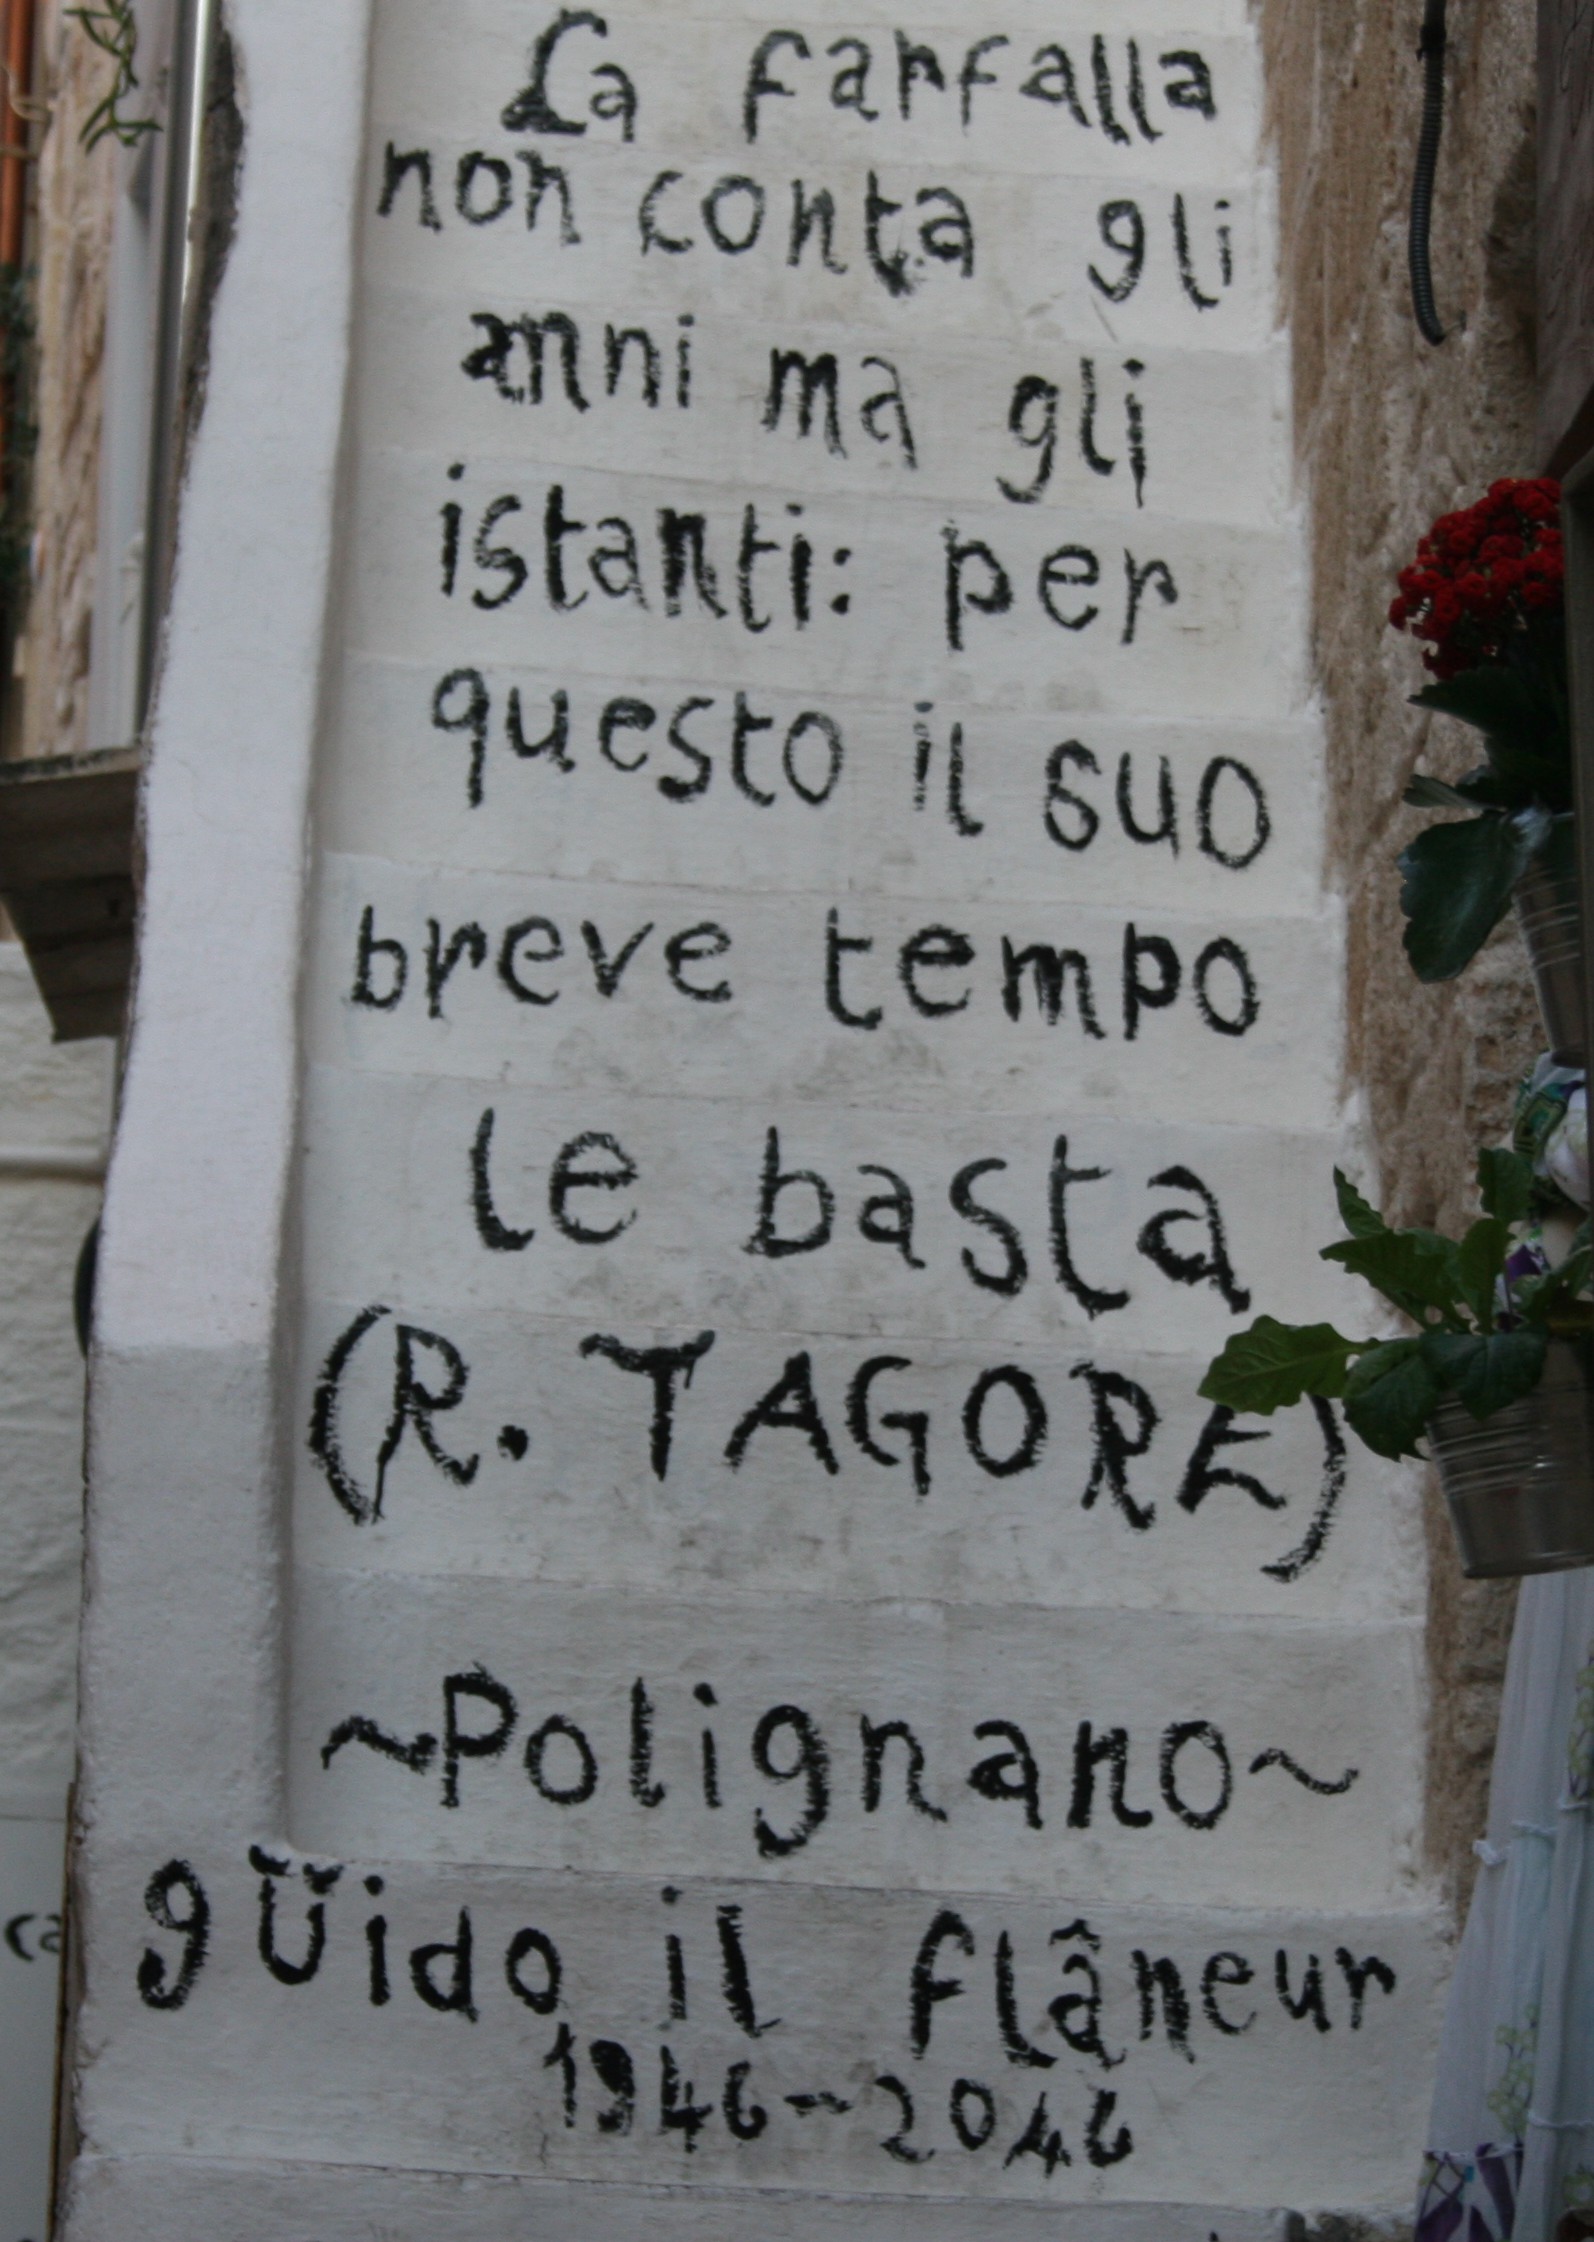 La farfalla
non conta gli
anni ma gli
istanti: per
questo il suo
breve tempo
le basta
(R. TAGORE)
~Polignano~
güido il flâneur
1946--2046